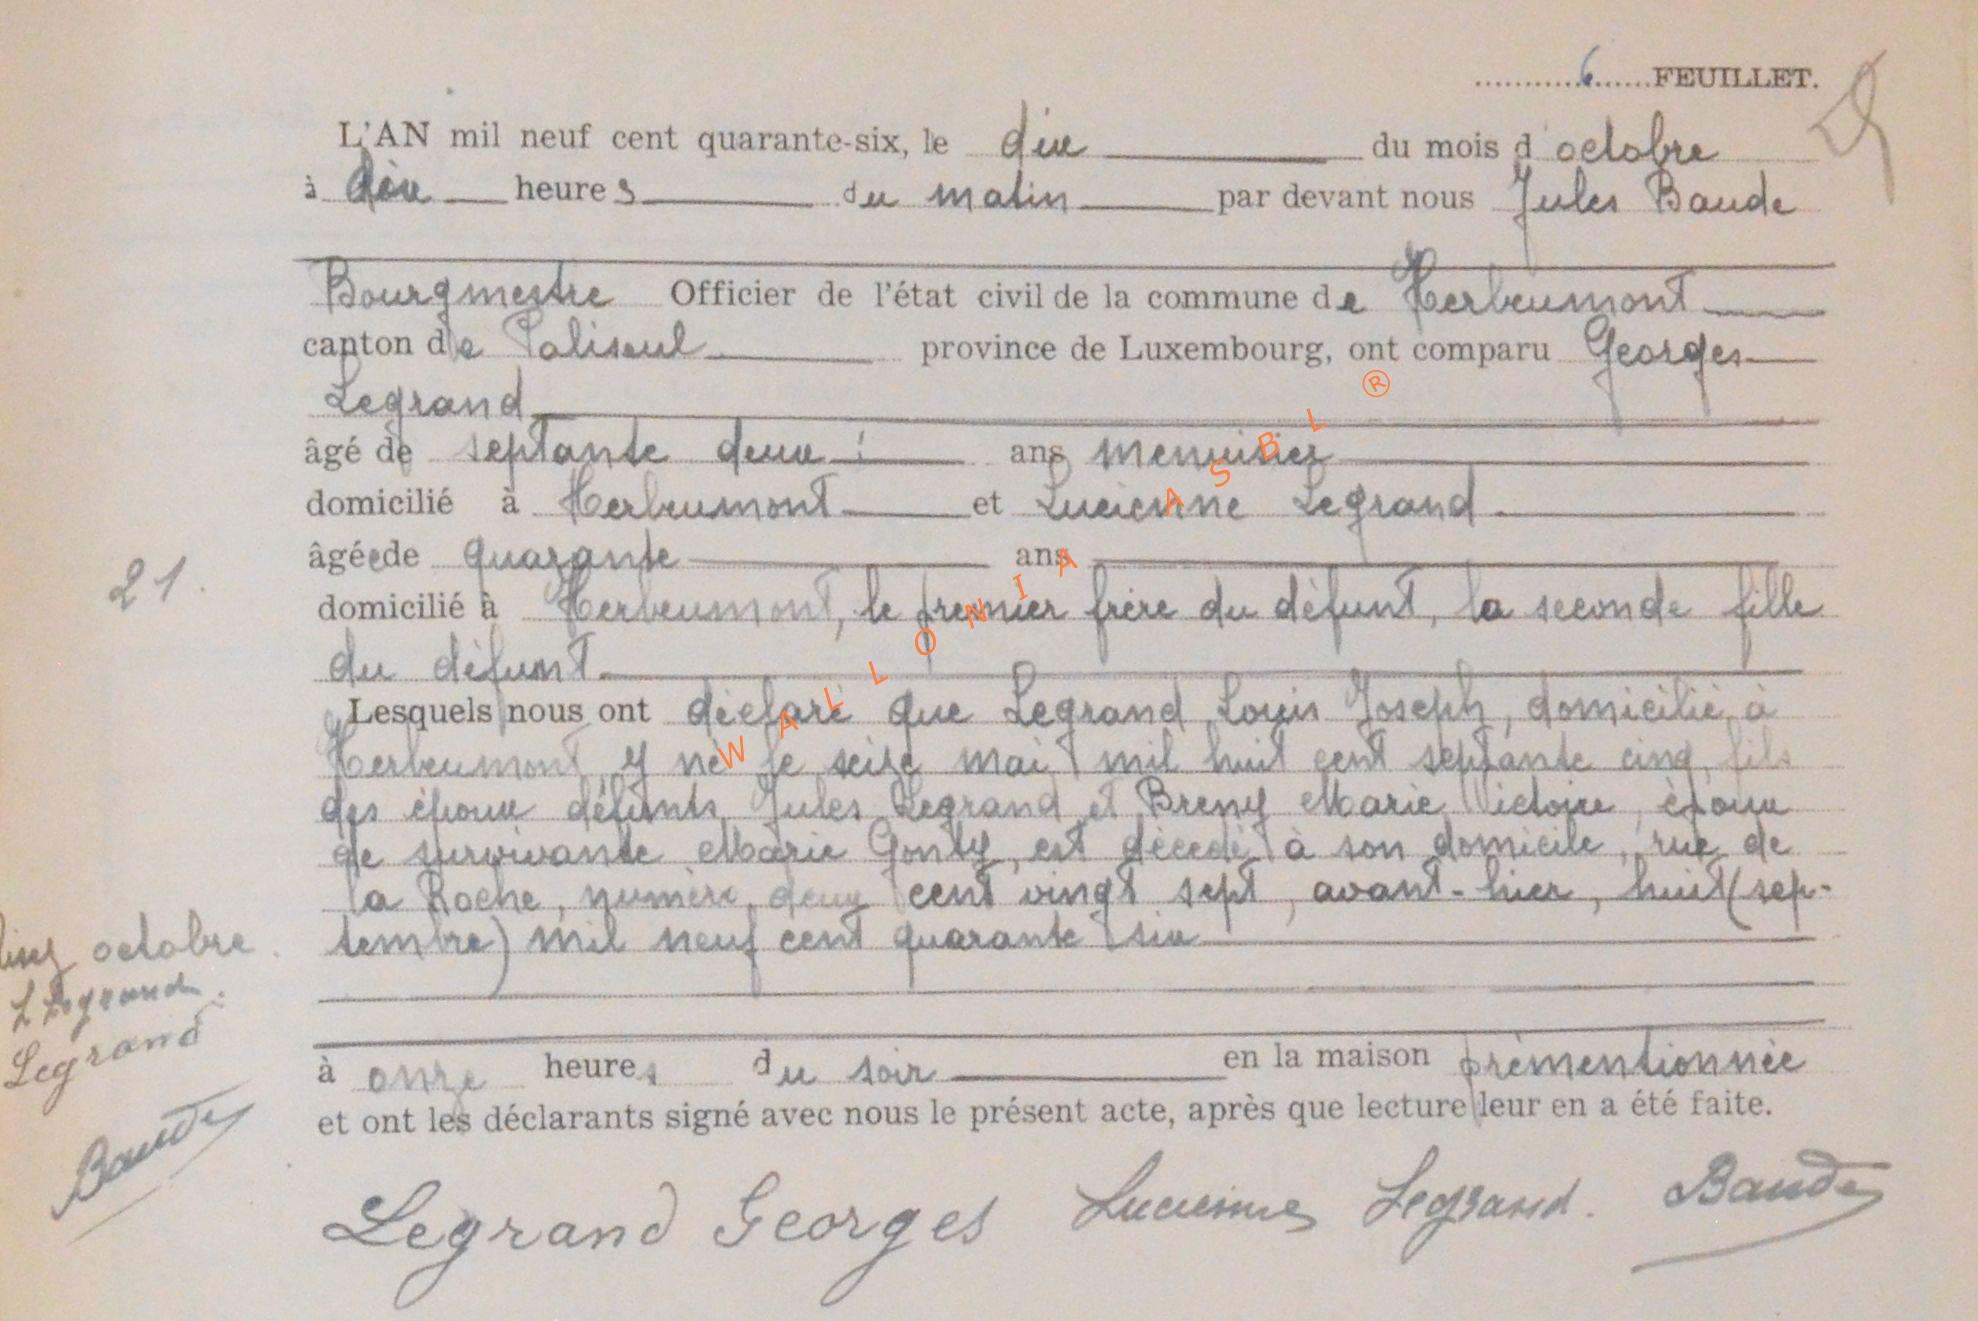 6 FEUILLET.
L'AN mil neuf cent quarante-six, le dix du mois d'octobre
à dix heures du matin par devant nous Jules Baude
Bourgmestre Officier de l'état civil de la commune de Herbeumont
canton de Paliseul province de Luxembourg, ont comparu Georges
Legrand
âgé de septante deux ans menuisier
domicilié à Herbeumont et Lucienne Legrand
âgée de quarante ans
domicilié à Herbeumont, le premier frère du défunt, la seconde fille
du défunt
Lesquels nous ont déclaré que Legrand Louis Joseph, domicilié à
Herbeumont, y né le seize mai mil huit cent septante cinq, fils
des époux défunts Jules Legrand et Breny Marie Victoire, époux
de survivante Marie Gonty, est décédé à son domicile, rue de
la Roche, numéro deux cent vingt sept, avant-hier, huit (sep-
tembre) mil neuf cent quarante six
à onze heures du soir en la maison prémentionnée
et ont les déclarants signé avec nous le présent acte, après que lecture leur en a été faite.
Legrand Georges Lucienne Legrand. Baude
21.
lisez octobre.
L Legrand.
Legrand
Baude
WALLONIA ASBL ®